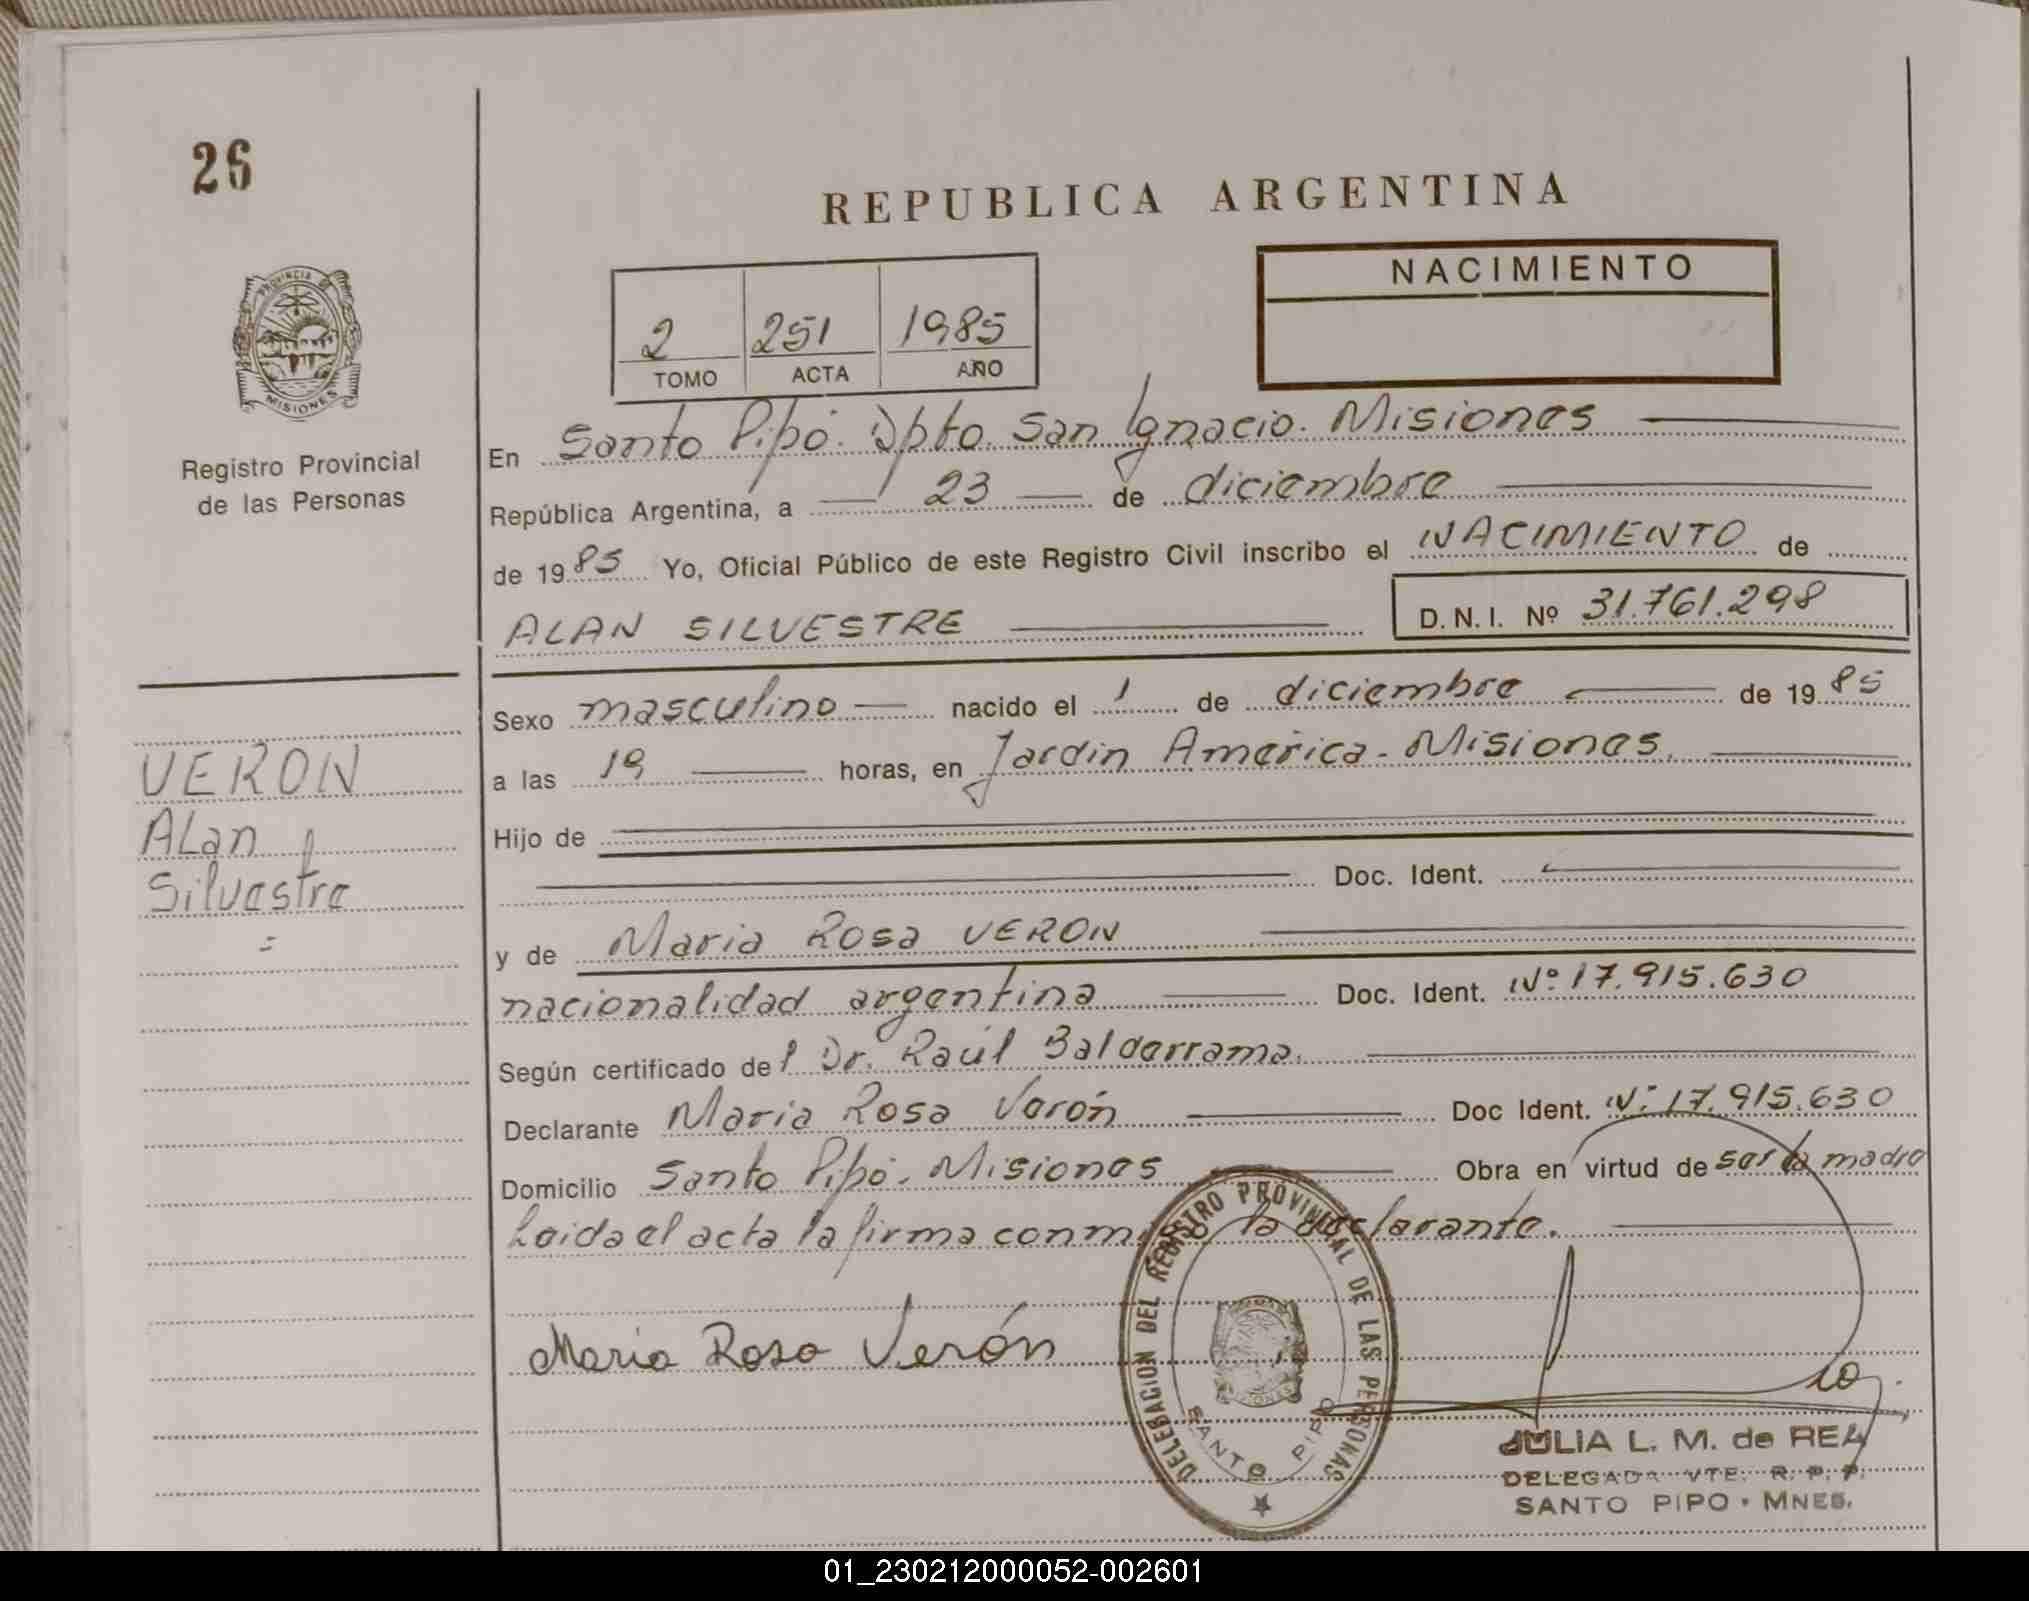 26
REPUBLICA ARGENTINA
NACIMIENTO
2 251 1985
TOMO ACTA AÑO
PROVINCIA DE
MISIONES
Registro Provincial
de las Personas
En Santo Pipó. Dpto. San Ignacio. Misiones
República Argentina, a 23 de diciembre
de 1985 Yo, Oficial Público de este Registro Civil inscribo el NACIMIENTO de
ALAN SILVESTRE D.N.I. Nº 31.761.298
Sexo masculino nacido el 1 de diciembre de 1985
a las 19 horas, en Jardin America. Misiones.
VERON
Alan
Silvestre
=
Hijo de
Doc. Ident.
y de Maria Rosa VERON
nacionalidad argentina Doc. Ident. Nº 17.915.630
Según certificado del Dr. Raúl Balderrama.
Declarante Maria Rosa Verón Doc Ident. Nº 17.915.630
Domicilio Santo Pipó. Misiones Obra en virtud de ser la madre
Leida el acta la firma conmigo la declarante.
Maria Rosa Verón
DELEGACION DEL REGISTRO PROVINCIAL DE LAS PERSONAS
SANTO PIPO
JULIA L. M. de REA
DELEGADA VTE. R. P. P.
SANTO PIPO • MNES.
01_230212000052-002601